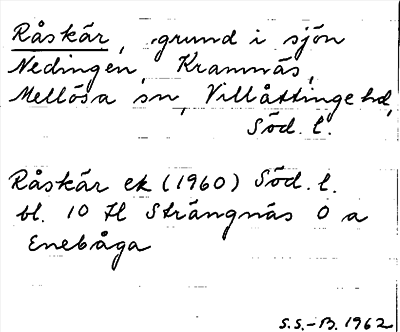 Råskär, grund i sjön
Nedingen, Kramnäs,
Mellösa sn, Villåttinge hd,
Söd. l.
Råskär ek (1960) Söd. l.
bl. 10 Il Strängnäs O a
Enebåga
S.S.-B. 1962